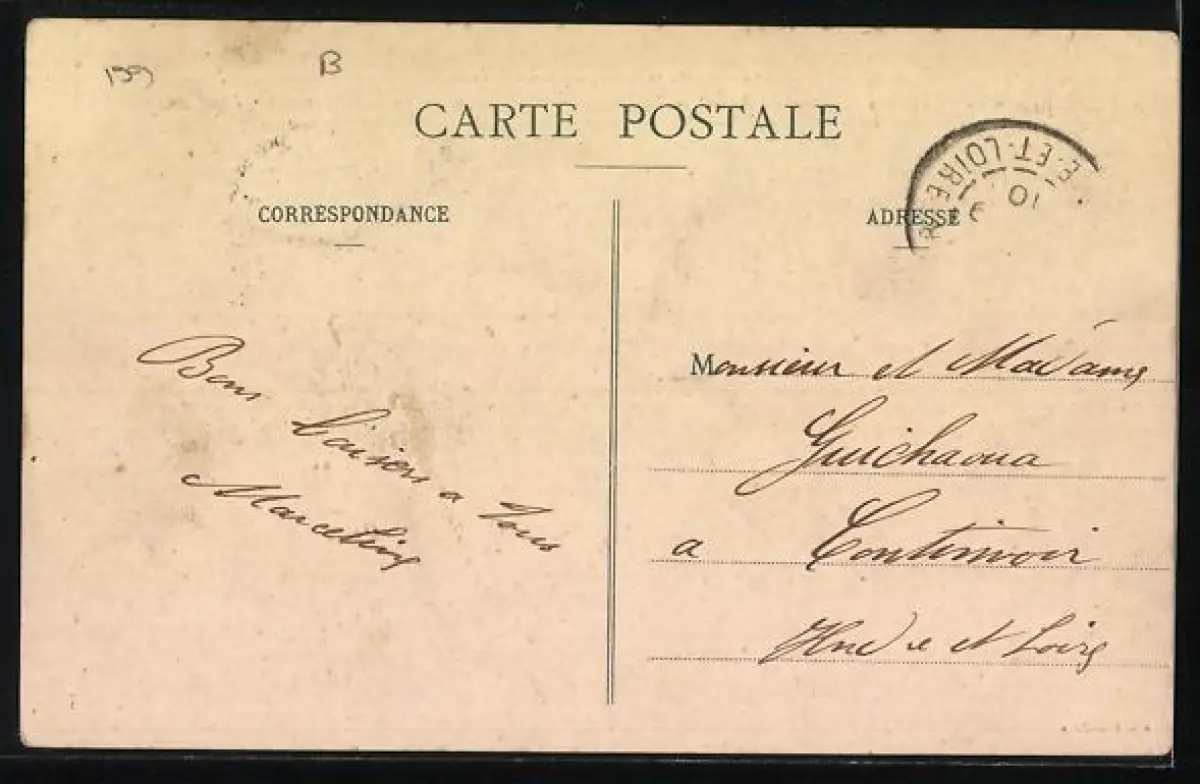 B
CARTE POSTALE
E-ET-LOIRE
10
CORRESPONDANCE
ADRESSE
Bons baisers a Tous
Marceline
Monsieur et Madame
Guichaoua
a Continvoir
Indre et Loire